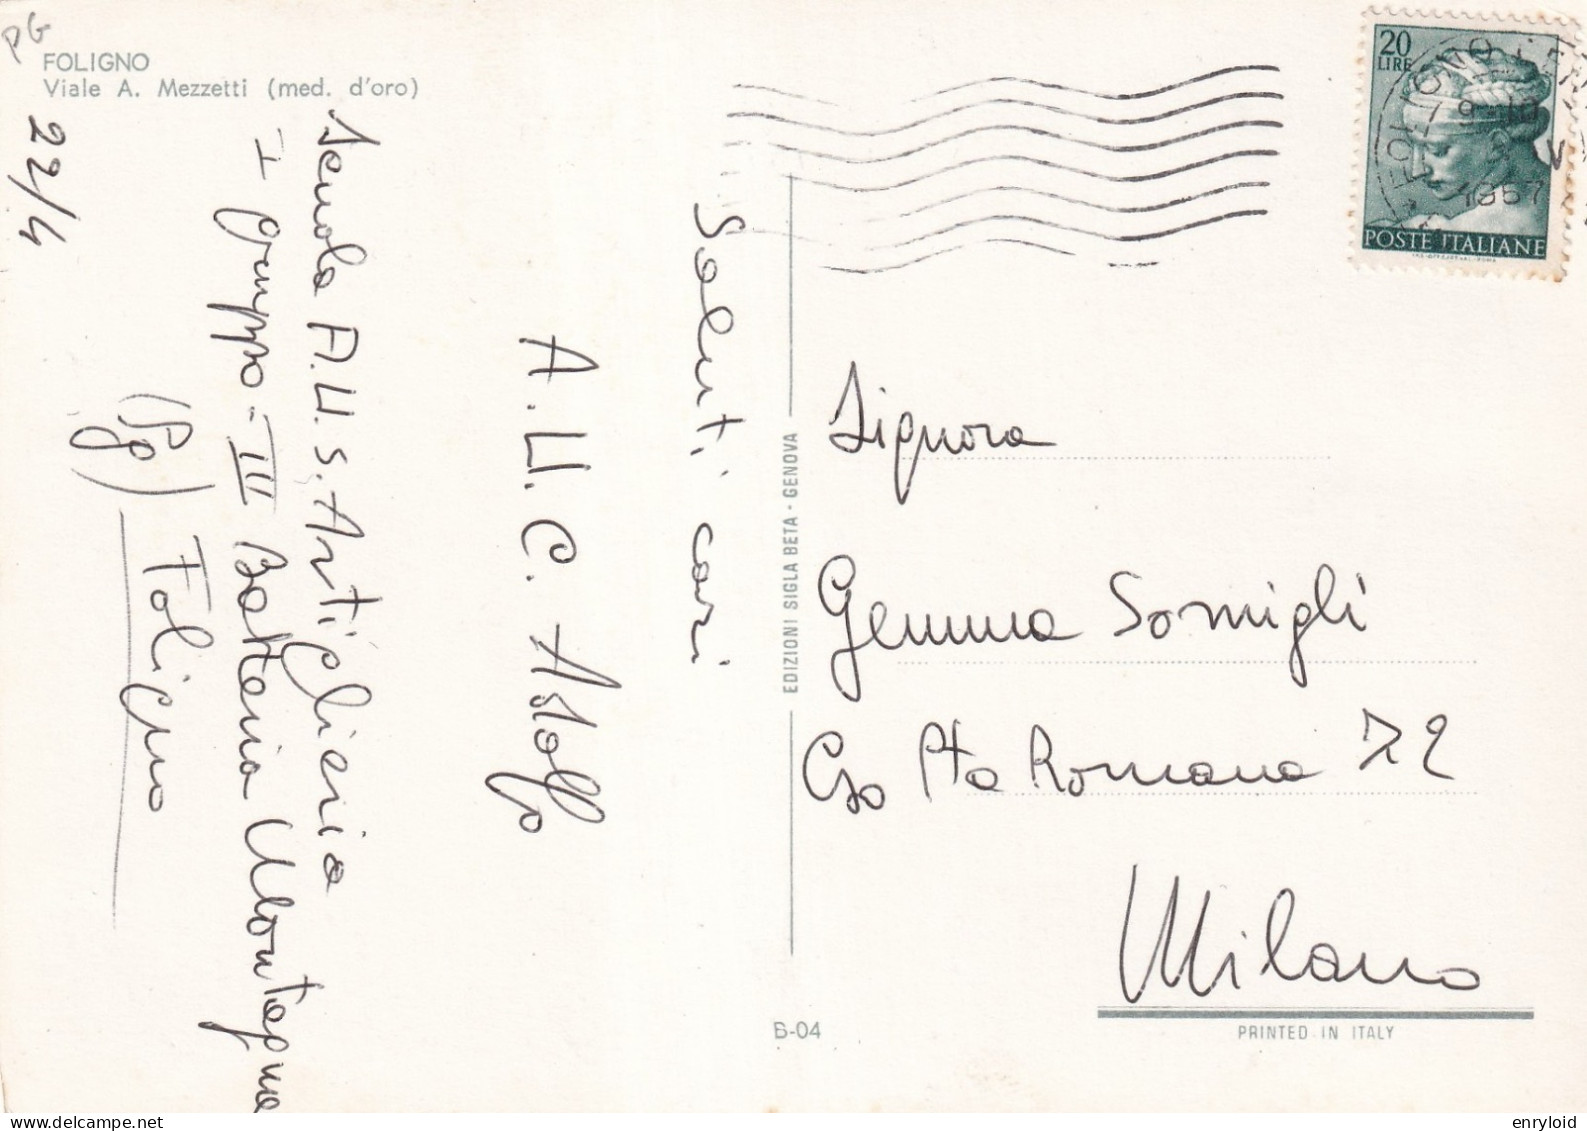 PG
FOLIGNO
Viale A. Mezzetti (med. d'oro)
22/4
Scuola A.U.S. Artiglieria
I gruppo - III Batteria Montagna
(Pg) Foligno
Saluti cari
A.U.C. Astolfo
EDIZIONI SIGLA BETA - GENOVA
20
LIRE
POSTE ITALIANE
FOLIGNO
9-10
V
1967
Signora
Gemma Somigli
Cso Pta Romana 72
Milano
6-04
PRINTED IN ITALY
enryloid